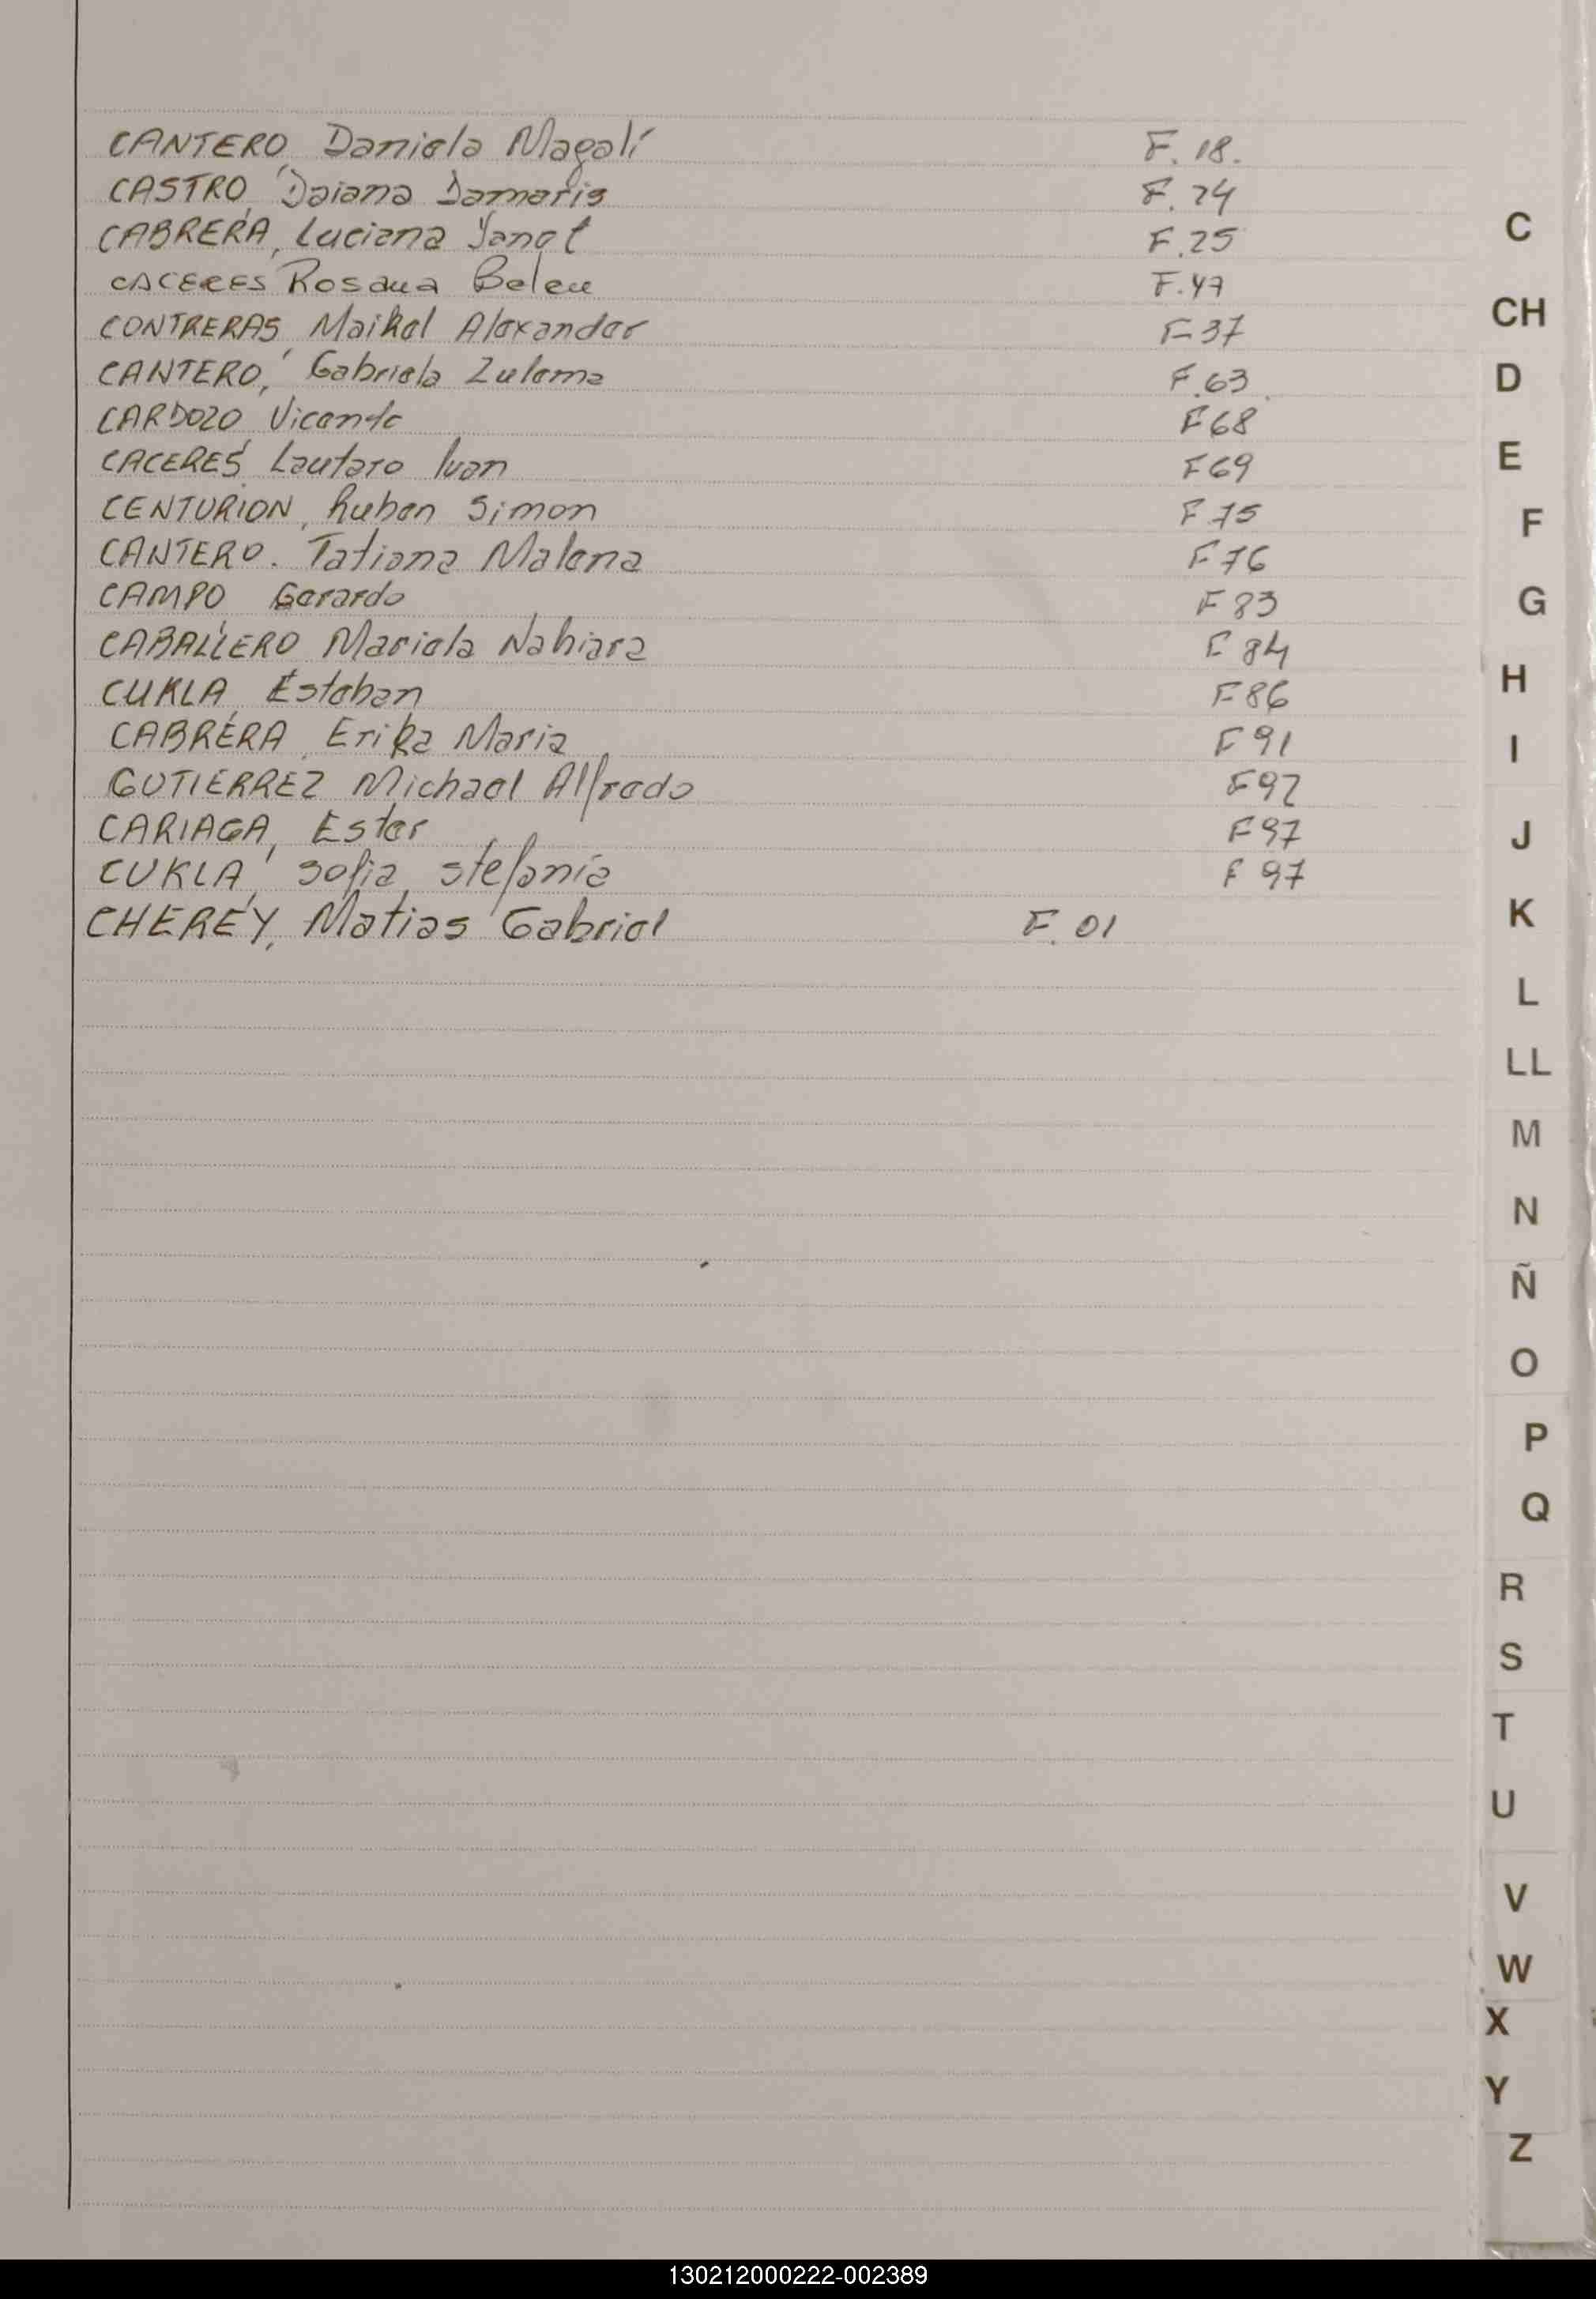 CANTERO, Daniela Magalí F. 18.
CASTRO, Daiana Damaris F. 24
CABRERA, Luciana Yanet F. 25
CACERES Rosana Belen F. 47
CONTRERAS, Maikel Alexander F 37
CANTERO, Gabriela Zulema F. 63
CARDOZO Vicente F 68
CACERES Lautaro Ivan F 69
CENTURION, Ruben Simon F 75
CANTERO. Tatiana Malena F 76
CAMPO Gerardo F 83
CABALLERO Mariela Nahiara F 84
CUKLA Esteban F 86
CABRERA, Erika Maria F 91
GUTIERREZ Michael Alfredo F 92
CARIAGA, Ester F 97
CUKLA, Sofia, Stefania F 97
CHEREY, Matias Gabriel F. 01
C
CH
D
E
F
G
H
I
J
K
L
LL
M
N
Ñ
O
P
Q
R
S
T
U
V
W
X
Y
Z
130212000222-002389